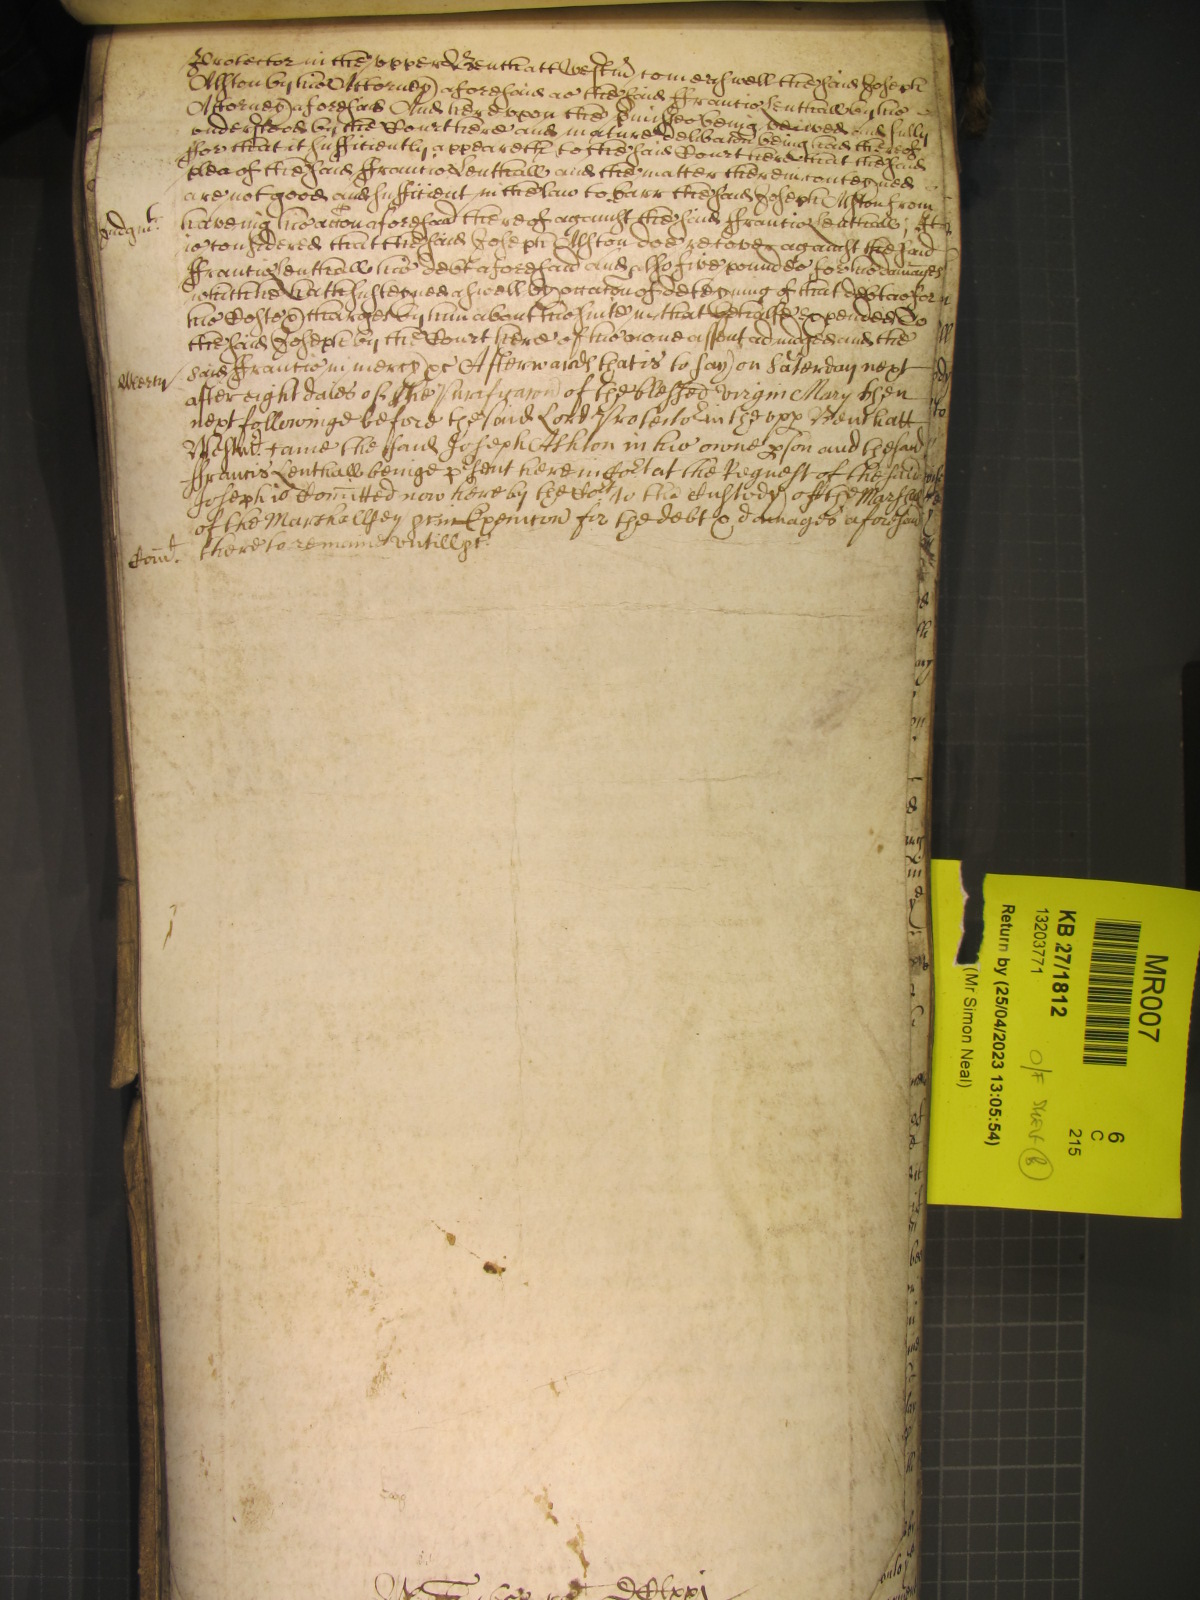 Protector in the upper Bench att Westm̃ come aswell the said Joseph
Alston by his Attorney aforesaid as the said ffrancis Lenthall by his
Attorney aforesaid And hereupon the p̃misses being veiwed and fully
understood by the Court here and mature deliberac̃on being had thereof
ffor that it sufficiently appeareth to the said Court here that the said
plea of the said ffrancis Lenthall and the matter therein conteyned
are not good and sufficient in the law to barr the said Joseph Alston from
Judgmt. haveing his acc̃on aforesaid thereof against the said ffrancis Lenthall; It
is considered that the said Joseph Alston doe recover against the said
ffrancis Lenthall his debt aforesaid and also five pounds for his damages
which he hath susteyned aswell by occac̃on of deteyning of that debt as for
his Costs & charges by him about his suite in that behalfe expended to
the said Joseph by the Court here of his owne assent adiudged and the
Mercy said ffrancis in mercy &c Afterwards that is to say on Saterday next
after eight daies of the Purificac̃on of the blessed virgin Mary then
next followinge before the said Lord Protector in the upp Bench att
Westm̃. came the said Joseph Ashton in his owne pson and the said
ffrancis Lenthall beinge p̃sent here in Cort at the Request of the said
Joseph is Com̃itted now here by the Cort to the Custody of the Marshall
of the Marshallsey in Execuc̃on for the debt & damages aforesaid
Com̃t. there to remaine untill &c.
MR007
KB 27/1812
13203771
6
C
215
O/F Shelf B
Return by (25/04/2023 13:05:54)
(Mr Simon Neal)